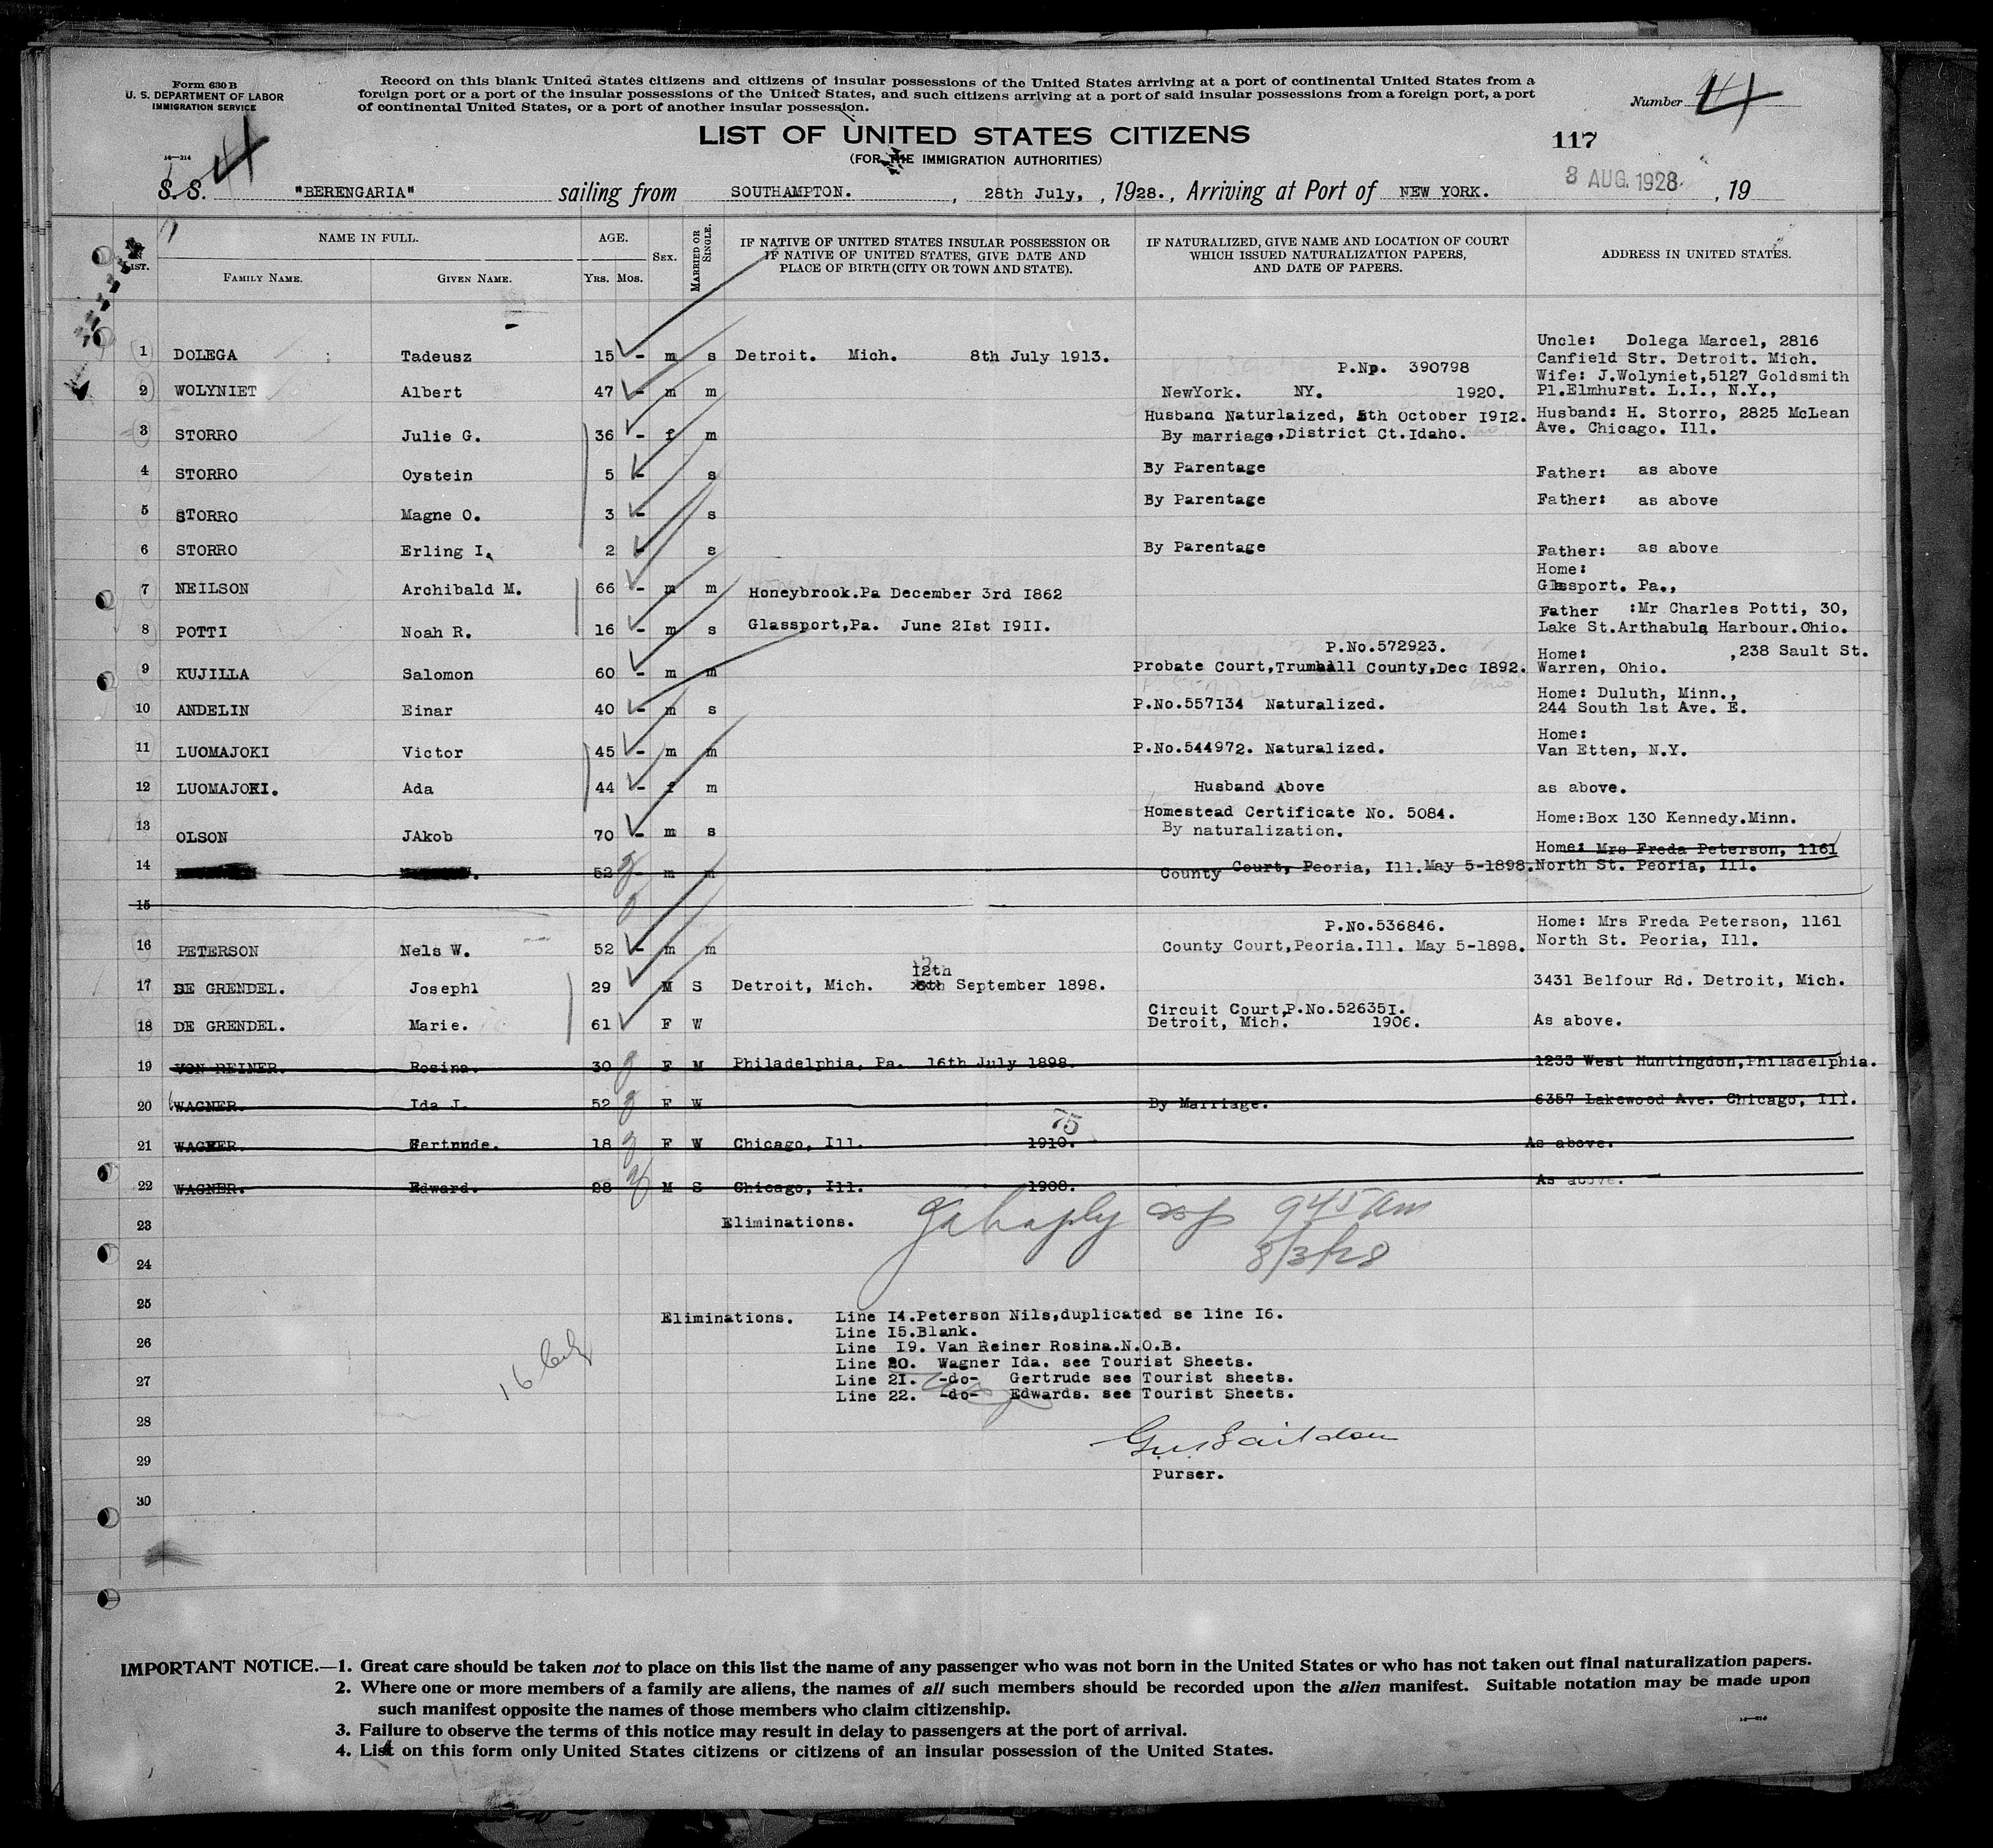 Form 630 B
U. S. DEPARTMENT OF LABOR
IMMIGRATION SERVICE
Record on this blank United States citizens and citizens of insular possessions of the United States arriving at a port of continental United States from a
foreign port or a port of the insular possessions of the United States, and such citizens arriving at a port of said insular possessions from a foreign port, a port
of continental United States, or a port of another insular possession.
Number 4
LIST OF UNITED STATES CITIZENS
117
(FOR THE IMMIGRATION AUTHORITIES)
14-214
4
S. S. "BERENGARIA" sailing from SOUTHAMPTON. , 28th July, , 1928. , Arriving at Port of NEW YORK. 3 AUG. 1928 , 19
LIST. NAME IN FULL. AGE. SEX. MARRIED OR SINGLE. IF NATIVE OF UNITED STATES INSULAR POSSESSION OR IF NATIVE OF UNITED STATES, GIVE DATE AND PLACE OF BIRTH (CITY OR TOWN AND STATE). IF NATURALIZED, GIVE NAME AND LOCATION OF COURT WHICH ISSUED NATURALIZATION PAPERS, AND DATE OF PAPERS. ADDRESS IN UNITED STATES.
FAMILY NAME. GIVEN NAME. YRS. MOS.
1 DOLEGA ; Tadeusz 15 - m s Detroit. Mich. 8th July 1913. Uncle: Dolega Marcel, 2816
Canfield Str. Detroit. Mich.
2 WOLYNIET Albert 47 - m m P.No. 390798 Wife: J.Wolyniet,5127 Goldsmith
NewYork. NY. 1920. Pl.Elmhurst. L.I., N.Y.,
3 STORRO Julie G. 36 - f m Husband Naturlaized, 5th October 1912. Husband: H. Storro, 2825 McLean
By marriage,District Ct.Idaho. Ave. Chicago. Ill.
4 STORRO Oystein 5 - s By Parentage Father: as above
5 STORRO Magne O. 3 - s By Parentage Father: as above
6 STORRO Erling I. 2 - s By Parentage Father: as above
7 NEILSON Archibald M. 66 - m m Honeybrook.Pa December 3rd 1862 Home:
Glassport. Pa.,
8 POTTI Noah R. 16 - m s Glassport,Pa. June 2Ist I9II. Father :Mr Charles Potti, 30,
Lake St.Arthabula Harbour.Ohio.
9 KUJILLA Salomon 60 - m m P.No.572923. Home: ,238 Sault St.
Probate Court,Trumball County,Dec I892. Warren, Ohio.
10 ANDELIN Einar 40 - m s P.No.557I34 Naturalized. Home: Duluth, Minn.,
244 South 1st Ave. E.
11 LUOMAJOKI Victor 45 - m m P.No.544972. Naturalized. Home:
Van Etten, N.Y.
12 LUOMAJOKI. Ada 44 - f m Husband Above as above.
13 OLSON JAkob 70 - m s Homestead Certificate No. 5084. Home:Box 130 Kennedy.Minn.
By naturalization.
14 52 - m m County Court, Peoria, Ill. May 5-1898. Home: Mrs Freda Peterson, 1161
North St. Peoria, Ill.
15
16 PETERSON Nels W. 52 - m m P.No.536846. Home: Mrs Freda Peterson, 1161
County Court,Peoria.Ill. May 5-1898. North St. Peoria, Ill.
17 DE GRENDEL. Josephl 29 M S Detroit, Mich. I2th September 1898. 3431 Belfour Rd. Detroit, Mich.
18 DE GRENDEL. Marie. 61 F W Circuit Court,P.No.52635I.
Detroit, Mich. 1906. As above.
19 VON REINER. Rosina. 30 F M Philadelphia, Pa. 16th July 1898. 1233 West Huntingdon,Philadelphia.
20 WAGNER. Ida J. 52 F W By Marriage. 6357 Lakewood Ave. Chicago, Ill.
75
21 WAGNER. Gertrude. 18 F W Chicago, Ill. 1910. As above.
22 WAGNER. Edward. 28 M S Chicago, Ill. 1900. As above.
23 Eliminations. 945 am
24 8/3/28
25 Eliminations. Line I4.Peterson Nils,duplicated se line I6.
Line I5.Blank.
26 Line I9. Van Reiner Rosina.N.O.B.
Line 20. Wagner Ida. see Tourist Sheets.
27 Line 21. -do- Gertrude see Tourist sheets.
Line 22. -do- Edwards. see Tourist Sheets.
16
28
29 Purser.
30
IMPORTANT NOTICE.—1. Great care should be taken not to place on this list the name of any passenger who was not born in the United States or who has not taken out final naturalization papers.
2. Where one or more members of a family are aliens, the names of all such members should be recorded upon the alien manifest. Suitable notation may be made upon
such manifest opposite the names of those members who claim citizenship.
3. Failure to observe the terms of this notice may result in delay to passengers at the port of arrival.
4. List on this form only United States citizens or citizens of an insular possession of the United States.